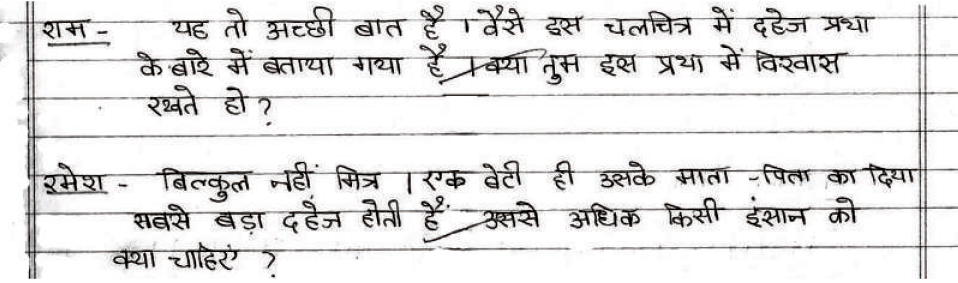 राम - यह तो अच्छी बात है । वैसे इस चलचित्र में दहेज प्रथा
के बारे में बताया गया है । क्या तुम इस प्रथा में विश्वास
रखते हो ?
रमेश - बिल्कुल नहीं मित्र । एक बेटी ही उसके माता - पिता का दिया
सबसे बड़ा दहैज होती हैं उससे अधिक किसी इंसान को
क्या चाहिएं ?